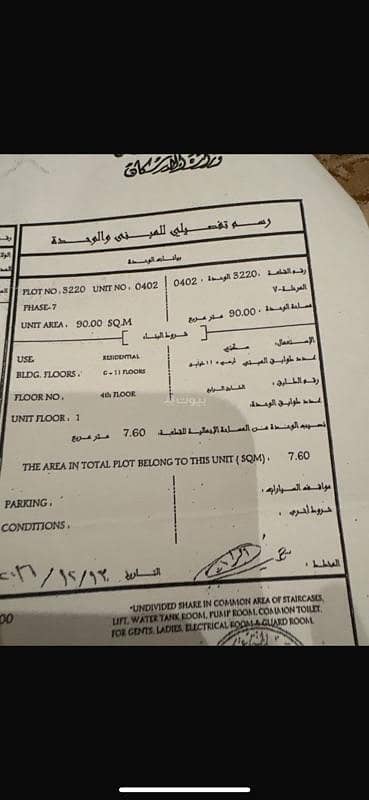 وزارة الاسكان
رسم تفصيلي للمبنى والوحدة
بيانات الوحدة
PLOT NO. 3220 UNIT NO. 0402
رقم القطعة . 3220 الوحدة . 0402
PHASE-7
المرحلة-٧
UNIT AREA . 90.00 SQ.M
مساحة الوحدة . 90.00 متر مربع
شروط البناء
USE. RESIDENTIAL
الإستعمال. سكني
BLDG. FLOORS . G - 11 FLOORS
عدد طوابق المبنى
FLOOR NO . 4th FLOOR
رقم الطابق . الطابق الرابع
UNIT FLOOR . 1
عدد طوابق الوحدة.
نصيب الوحدة من المساحة الإجمالية للقطعة. 7.60 متر مربع
THE AREA IN TOTAL PLOT BELONG TO THIS UNIT ( SQM) . 7.60
PARKING .
مواقف السيارات .
CONDITIONS .
شروط أخرى .
المخطط .
التاريخ
*UNDIVIDED SHARE IN COMMON AREA OF STAIRCASES,
LIFT, WATER TANK ROOM, PUMP ROOM, COMMON TOILET,
FOR GENTS, LADIES, ELECTRICAL ROOM & GUARD ROOM.
بيوت